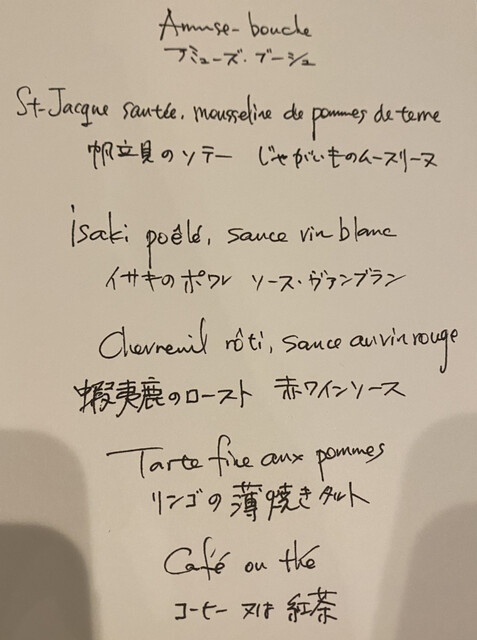 Amuse-bouche
アミューズ・ブーシュ
St-Jacque sautée, mousseline de pommes de terre
帆立貝のソテー じゃがいものムースリーヌ
isaki poêlé, sauce vin blanc
イサキのポワレ ソース・ヴァンブラン
Chevreuil rôti, sauce au vin rouge
蝦夷鹿のロースト 赤ワインソース
Tarte fine aux pommes
リンゴの薄焼きタルト
Café ou thé
コーヒー 又は 紅茶